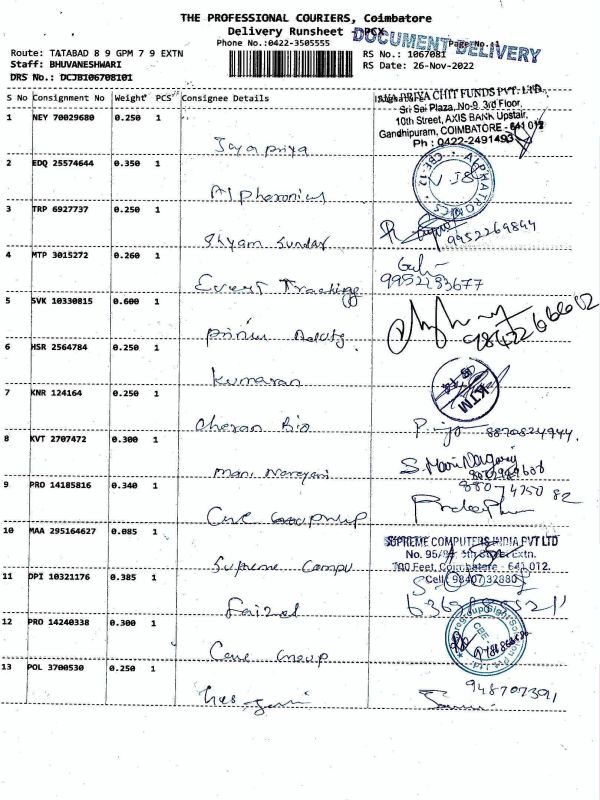 THE PROFESSIONAL COURIERS, Coimbatore
Delivery Runsheet - PCX
DOCUMENT DELIVERY
Phone No.:0422-3505555
Page No.:1
Route: TATABAD 8 9 GPM 7 9 EXTN
RS No.: 1067081
Staff: BHUVANESHWARI
RS Date: 26-Nov-2022
DRS No.: DCJB106708101
S No Consignment No Weight PCS Consignee Details
PRIYA CHIT FUNDS PVT. LTD.
Sri Sai Plaza, No-9, 3rd Floor,
10th Street, AXIS BANK Upstair,
Gandhipuram, COIMBATORE - 641 012
Ph : 0422-2491493
1 NEY 70029680 0.250 1
Jayapriya
2 EDQ 25574644 0.350 1
ALPHATRONICS
CBE-12
3 TRP 6927737 0.250 1
Shyam Sundar
9952269844
4 MTP 3015272 0.260 1
Event Tracking
9952283677
5 SVK 10330815 0.600 1
6 HSR 2564784 0.250 1
Kumaran
KTM
7 KNR 124164 0.250 1
Cheran Bio
8870824944.
8 KVT 2707472 0.300 1
Mani Narayani
S. Mani Nagaraj
9 PRO 14185816 0.340 1
88074750 82
Care Group
10 MAA 295164627 0.085 1
SUPREME COMPUTERS INDIA PVT LTD
No. 95/ 5th Street Extn.
100 Feet, Coimbatore - 641 012.
Cell : 98407 32880
Supreme Compu
11 DPI 10321176 0.385 1
Faizal
12 PRO 14240338 0.300 1
Care Group
CBE
13 POL 3700530 0.250 1